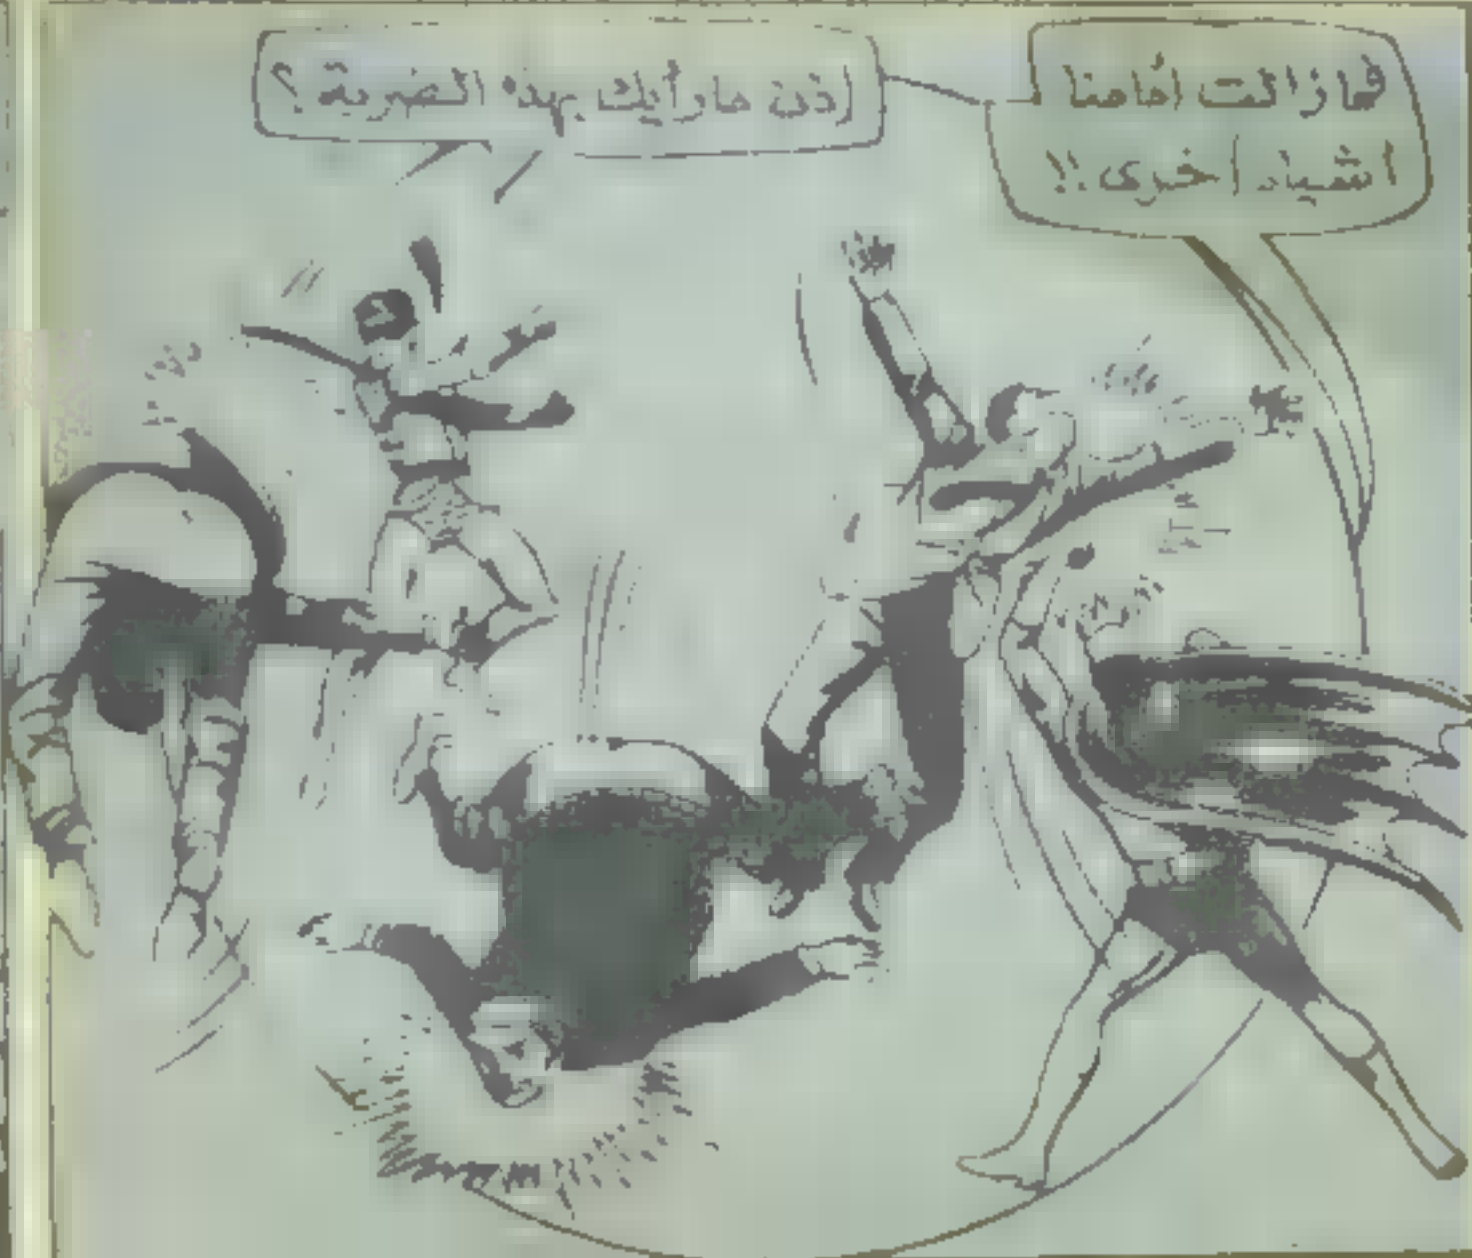 فمازالت أمامنا
اشياء أخرى !!
إذن ما رأيك بهذه الضربة ؟